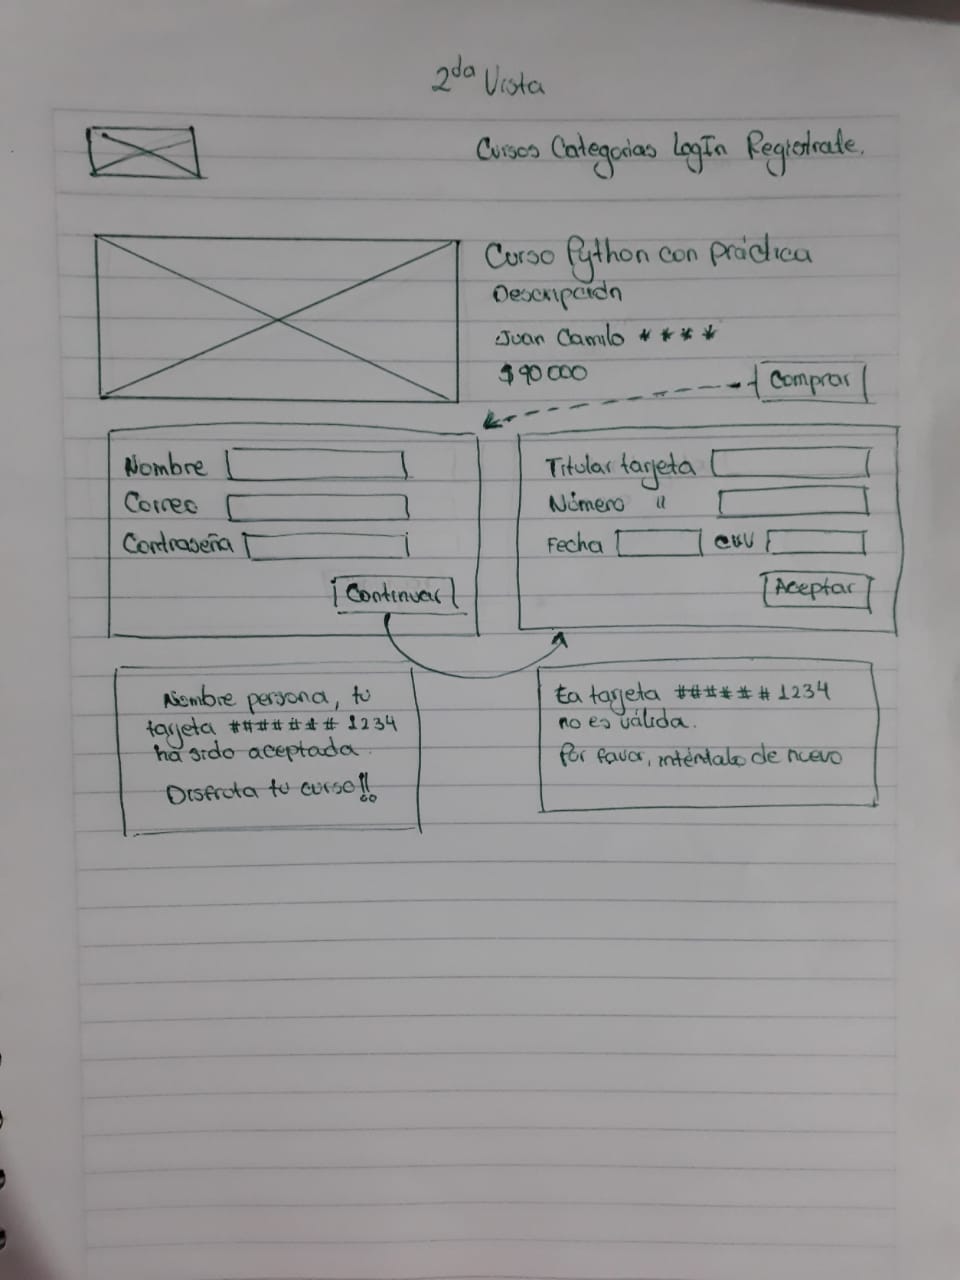 2da Vista
Cursos Categorias LogIn Registrate.
Curso Python con práctica
Descripción
Juan Camilo ****
$90000
Comprar
Nombre
Correo
Contraseña
Continuar
Titular tarjeta
Número "
Fecha CVV
Aceptar
Nombre persona, tu
tarjeta ####### 1234
ha sido aceptada.
Disfruta tu curso!!
La tarjeta ###### 1234
no es válida.
Por favor, inténtalo de nuevo